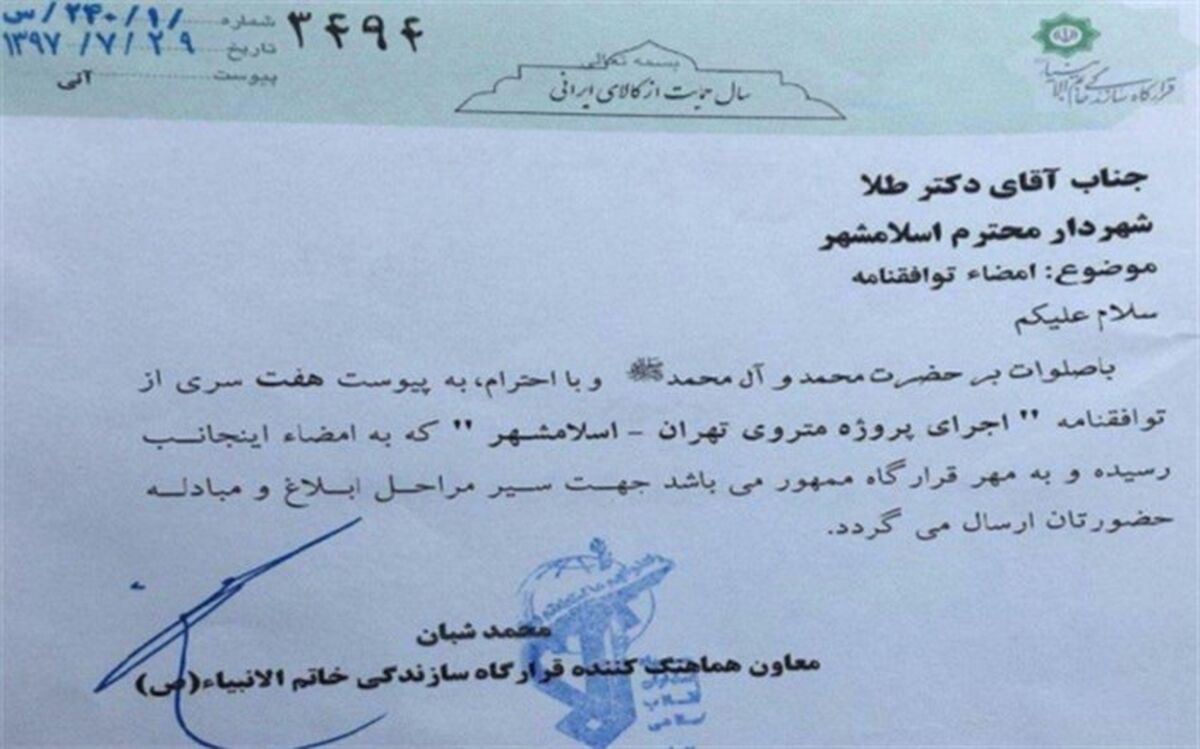 ۳۴۹۴
شماره ۲۴۰/۱/ س/
تاریخ ۱۳۹۷/۷/۲۹
پیوست آنی
بسمه تعالی
سال حمایت از کالای ایرانی
قرارگاه سازندگی خاتم الانبیاء
جناب آقای دکتر طلا
شهردار محترم اسلامشهر
موضوع: امضاء توافقنامه
سلام علیکم
باصلوات بر حضرت محمد و آل محمدﷺ و با احترام، به پیوست هفت سری از
توافقنامه " اجرای پروژه متروی تهران - اسلامشهر " که به امضاء اینجانب
رسیده و به مهر قرارگاه ممهور می باشد جهت سیر مراحل ابلاغ و مبادله
حضورتان ارسال می گردد.
محمد شبان
معاون هماهنگ کننده قرارگاه سازندگی خاتم الانبیاء(ص)